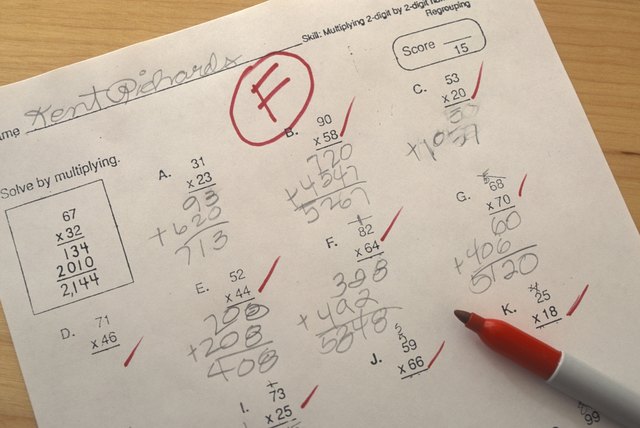 Skill: Multiplying 2-digit by 2-digit
Regrouping
Score
15
Kent Richards
F
Solve by multiplying.
67
x 32
134
2010
2,144
A.
31
x 23
93
+ 620
713
B.
90
x 58
720
+ 4547
5267
C.
53
x 20
D.
71
x 46
E.
52
x 44
208
+ 208
408
F.
82
x 64
328
+ 492
5848
G.
68
x 70
60
+ 406
5120
I.
73
x 25
J.
59
x 66
K.
25
x 18
99